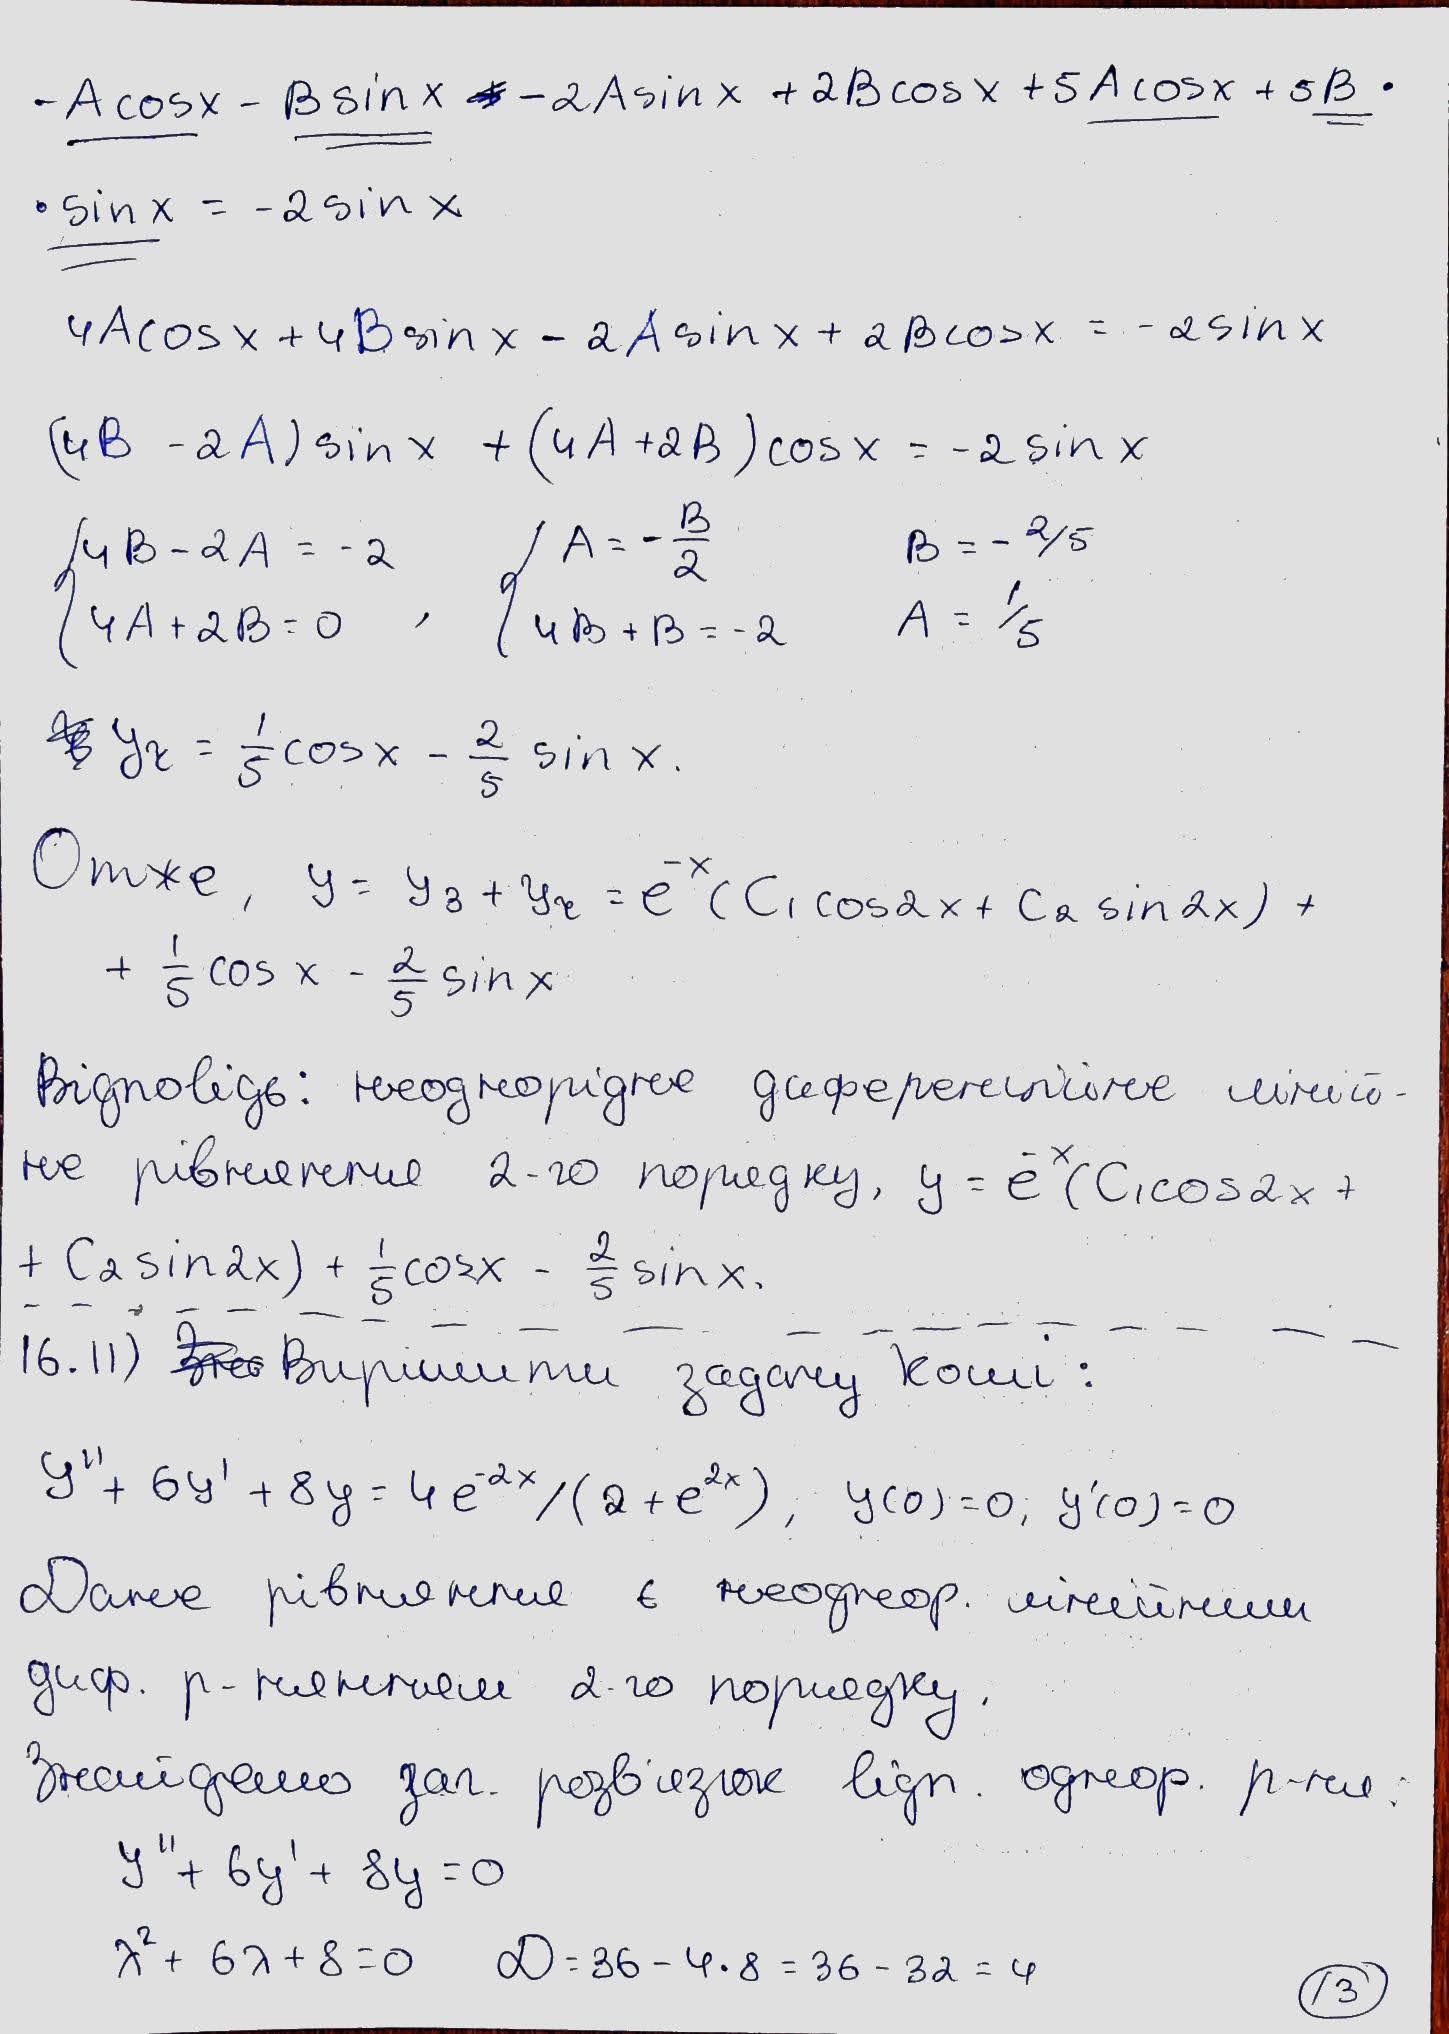 -Acosx - Bsinx -2Asinx + 2Bcosx + 5Acosx + 5B ·
· sinx = -2sinx
4Acosx + 4Bsinx - 2Asinx + 2Bcosx = -2sinx
(4B - 2A)sinx + (4A + 2B)cosx = -2sinx
{4B - 2A = -2 {A = -B/2 B = -2/5
{4A + 2B = 0 , {4B + B = -2 A = 1/5
yч = 1/5 cosx - 2/5 sinx.
Отже, y = yз + yч = e^-x (C1cos2x + C2sin2x) +
+ 1/5 cosx - 2/5 sinx
Відповідь: неоднорідне диференційне ліній-
не рівняння 2-го порядку, y = e^-x (C1cos2x +
+ C2sin2x) + 1/5 cosx - 2/5 sinx.
16.11) Вирішити задачу Коші:
y'' + 6y' + 8y = 4e^-2x/(2 + e^2x), y(0) = 0, y'(0) = 0
Дане рівняння є неоднор. лінійним
диф. р-нянням 2-го порядку.
Знайдемо заг. розв'язок відп. однор. р-ня:
y'' + 6y' + 8y = 0
λ² + 6λ + 8 = 0 D = 36 - 4·8 = 36 - 32 = 4
13